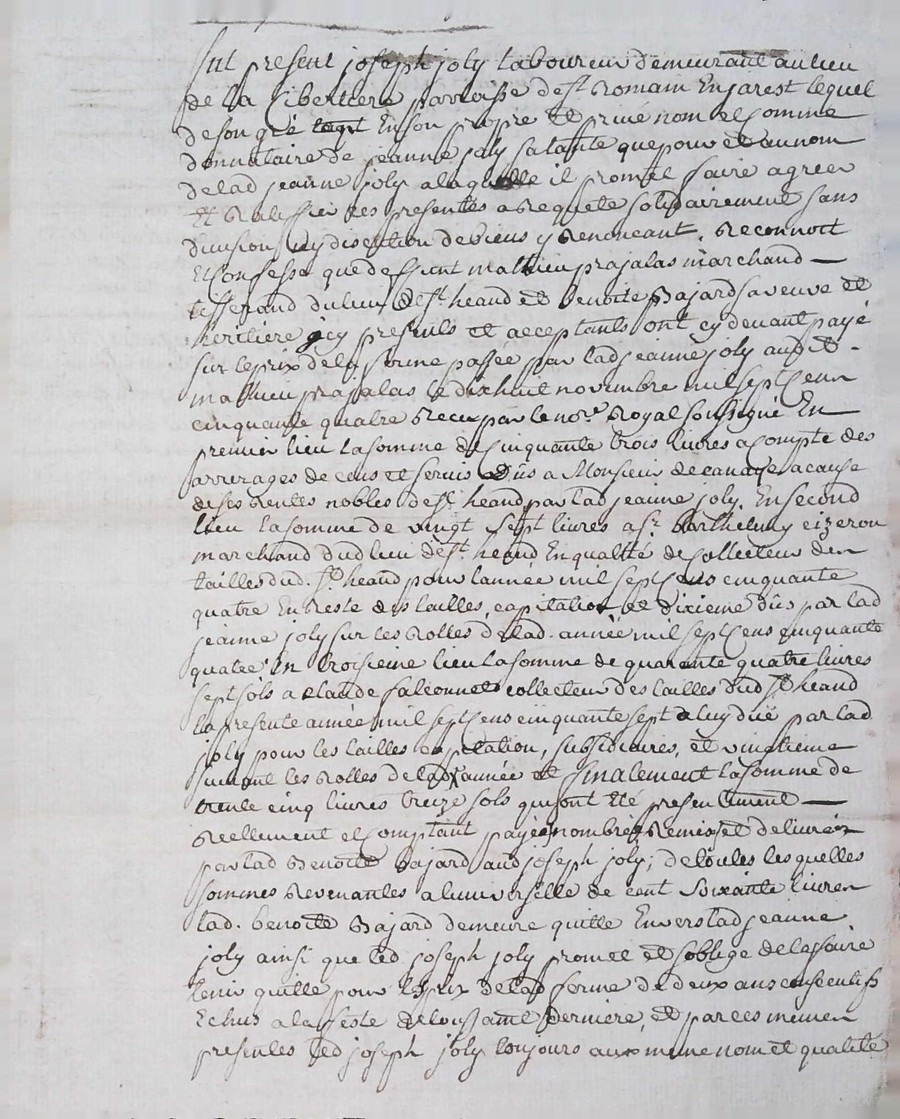 fut present joseph joly laboureur demeurant au lieu
de la Libertiere parroisse de st Romain En jarest lequel
de son gré tant En son propre et privé nom et Comme
donnataire de jeanne joly sa tante que pour et au nom
de lad jeanne joly a laquelle il promet faire agreer
et Ratiffier ces presentes a Requete solidairement sans
division ny discution de biens y Renonceant, Reconnoit
et Confesse que deffunt mathieu prajalas marchand
tisserand du lieu de st heand et benoite Bajard sa veuve et
heritiere icy presents et acceptants ont cy devant payé
sur le prix de la ferme passée par lad jeanne joly aud
mathieu prajalas le dixhuit novembre mil sept Cent
cinquante quatre Recu par le nore Royal soussigné En
premier lieu la somme de Cinquante trois livres a Compte des
arrerages de cens et servis dûs a Monsieur de a cause
de ses rentes nobles de st heand par lad jeanne joly. En second
lieu la somme de vingt sept livres a sr barthelemy eizeron
marchand dud lieu de st heand En qualité de Collecteur des
tailles dud. st heand pour l'année mil sept Cens cinquante
quatre En Reste des tailles, capitation et dixieme dûs par lad
jeanne joly sur les Rolles de lad. année mil sept Cens cinquante
quatre En troisieme lieu la somme de quarante quatre livres
sept sols a claude falconnet collecteur des tailles dud st heand
la presente année mil sept Cens cinquante sept a luy duë par lad
joly pour les tailles capitation, subsidiaires, et vingtieme
suivant les Rolles de lad année et finalement la somme de
trente cinq livres treize sols qui ont été presentement
Reellement et Comptant payés nombrés Remis et delivrés
par lad Benoite Bajard aud joseph joly; de toutes lesquelles
sommes Revenantes a l'universelle de cent soixante livres
lad. benoite Bajard demeure quitte Envers lad jeanne
joly ainsi que led joseph joly promet et soblige de la faire
tenir quitte pour le prix de lad ferme de deux ans consecutifs
Echus a la feste de toussaint derniere, et par ces memes
presentes led joseph joly toujours aux meme nom et qualité